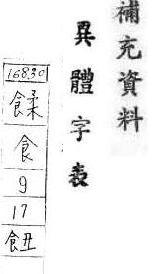 補充資料
異體字表
16830
食
9
17